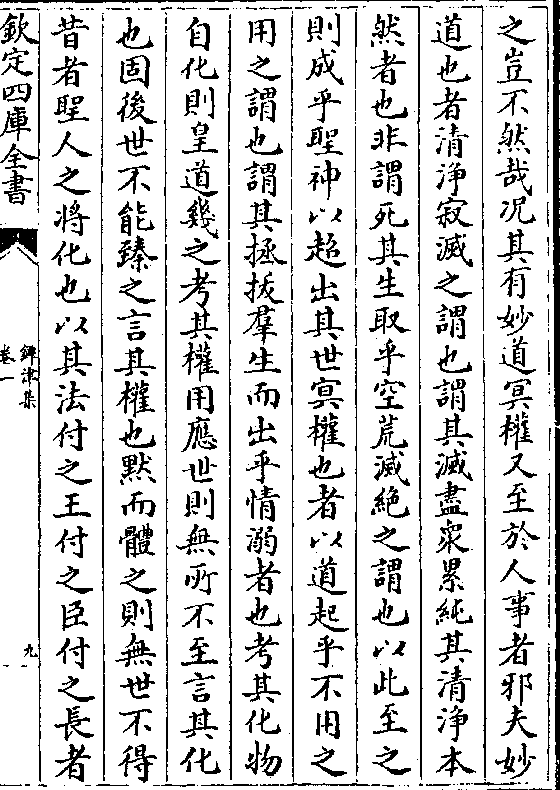 之豈不然哉况其有妙道冥權又至於人事者邪夫妙
道也者清浄寂滅之謂也謂其滅盡衆累純其清浄本
然者也非謂死其生取乎空荒滅絶之謂也以此至之
則成乎聖神以超出其世冥權也者以道起乎不用之
用之謂也謂其拯拔羣生而出乎情溺者也考其化物
自化則皇道幾之考其權用應世則無所不至言其化
也固後世不能臻之言其權也黙而體之則無世不得
昔者聖人之將化也以其法付之王付之臣付之長者
欽定四庫全書
鐔津集
卷一
九